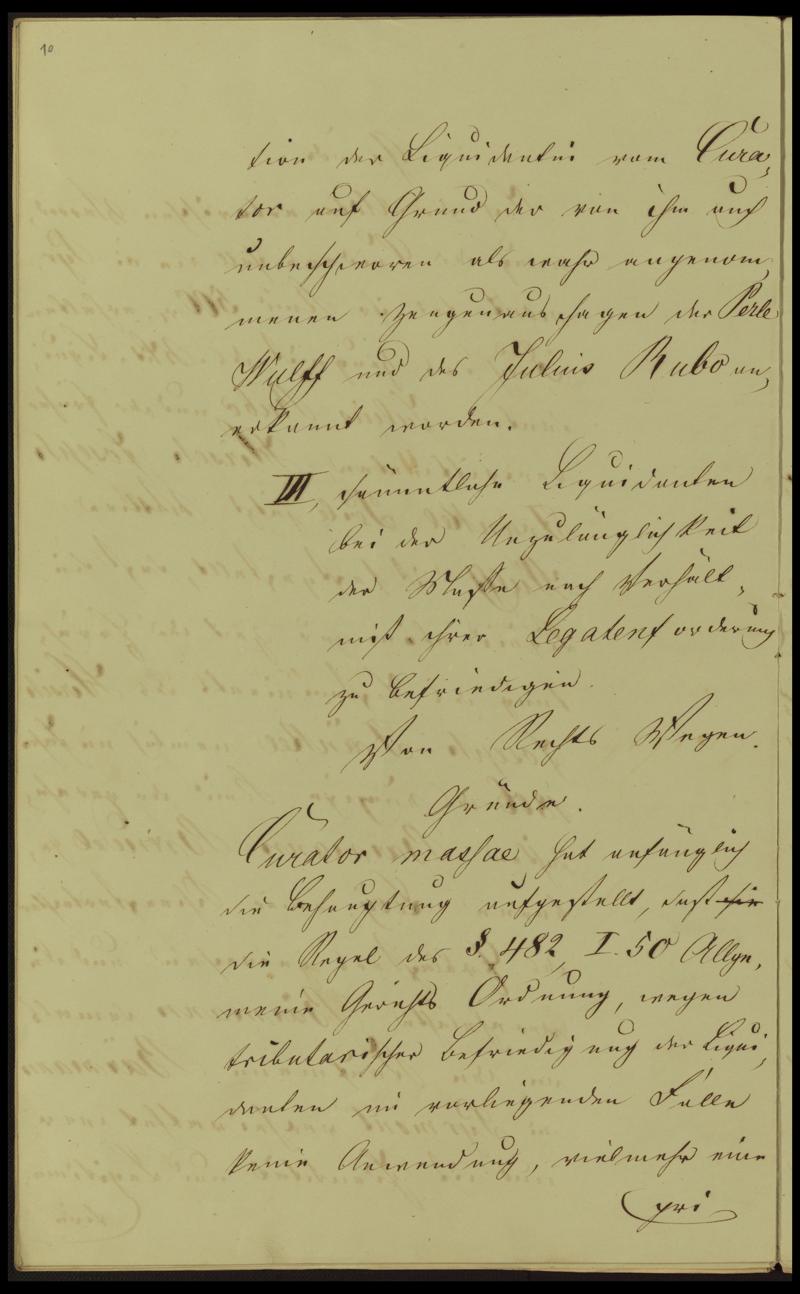 10
tion der Liquidantin vom Cura-
tor auf Grund der von ihm auch
unbeschworen als wahr angenom-
menen Zeugenaussagen der Perle
Wulff und des Julius Rubo an-
erkannt worden.
III, sämmtliche Liquidanten
bei der Unzulänglichkeit
der Masse nach Verhält-
niß ihrer Legatenforderung
zu befriedigen.
Von Rechts Wegen.
Gründe.
Curator massae hat anfänglich
die Behauptung aufgestellt, daß sie
die Regel des §. 482, I. 50 Allge-
meine Gerichts Ordnung, wegen
tributarischer Befriedigung der Liqui-
danten im vorliegenden Falle
keine Anwendung, vielmehr eine
pri